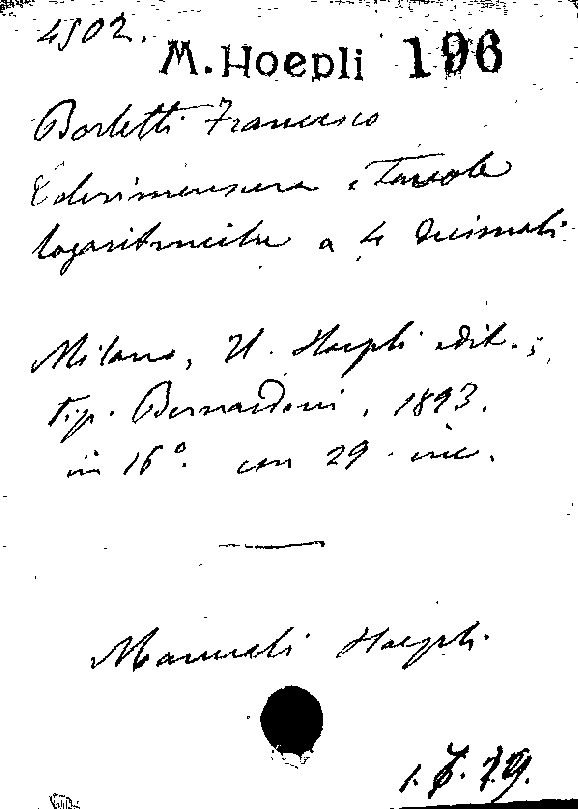 4502.
M. Hoepli 196
Borletti Francesco
Celerimensura e Tavole
logaritmiche a 4 decimali
Milano, U. Hoepli edit.;
tip. Bernardoni, 1893.
in 16°. con 29 inc.
Manuali Hoepli.